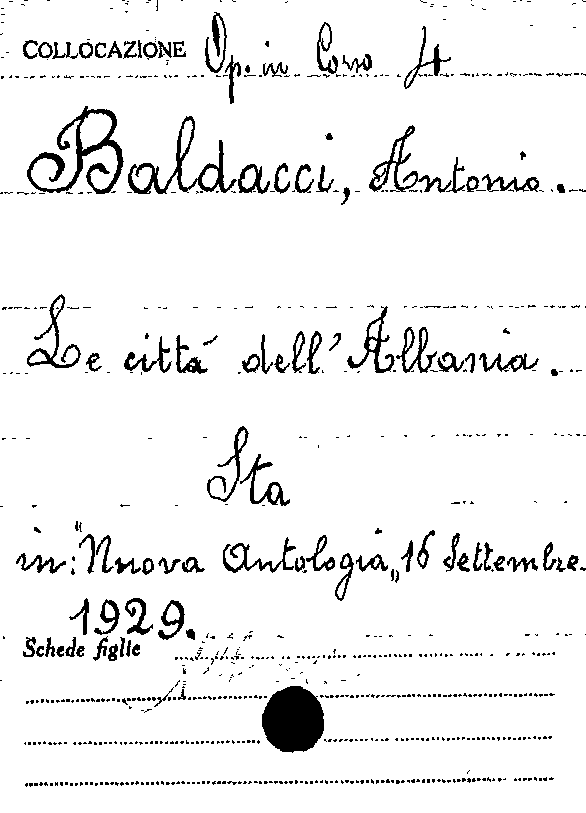 COLLOCAZIONE Op. in Corso 4
Baldacci, Antonio.
Le cittá dell'Albania.
Sta
in: "Nuova Antologia„ 16 Settembre
1929.
Schede figlie